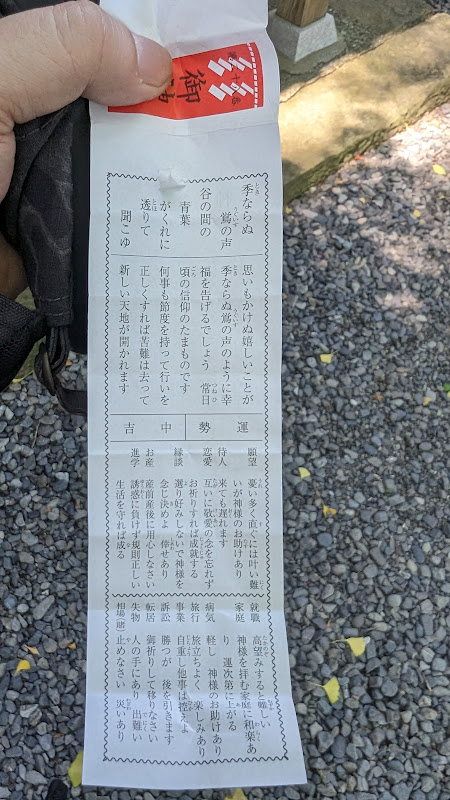 御
季ならぬ
鴬の声
谷の間の
青葉
がくれに
透りて
聞こゆ
思いもかけぬ嬉しいことが
季ならぬ鴬の声のように幸
福を告げるでしょう 常日
頃の信仰のたまものです
何事も節度を持って行いを
正しくすれば苦難は去って
新しい天地が開かれます
運勢 中吉
願望 憂い多く直ぐには叶い難
いが神様のお助けあり
待人 来ても遅れます
恋愛 互いに敬愛の念を忘れず
お祈りすれば成就する
縁談 選り好みしないで神様を
念じ決めよ 倖せあり
お産 産前産後に用心しなさい
進学 誘惑に負けず規則正しい
生活を守れば成る
就職 高望みすると難しい
家庭 神様を拝む家庭に和楽あ
り 運次第に上がる
病気 軽し 神様のお助けあり
旅行 旅立ちよく 楽しみあり
事業 自重し他事は控えよ
訴訟 勝つが 後を引きます
転居 御祈りして移りなさい
失物 人の手にあり 出難い
相場賭 止めなさい 災いあり